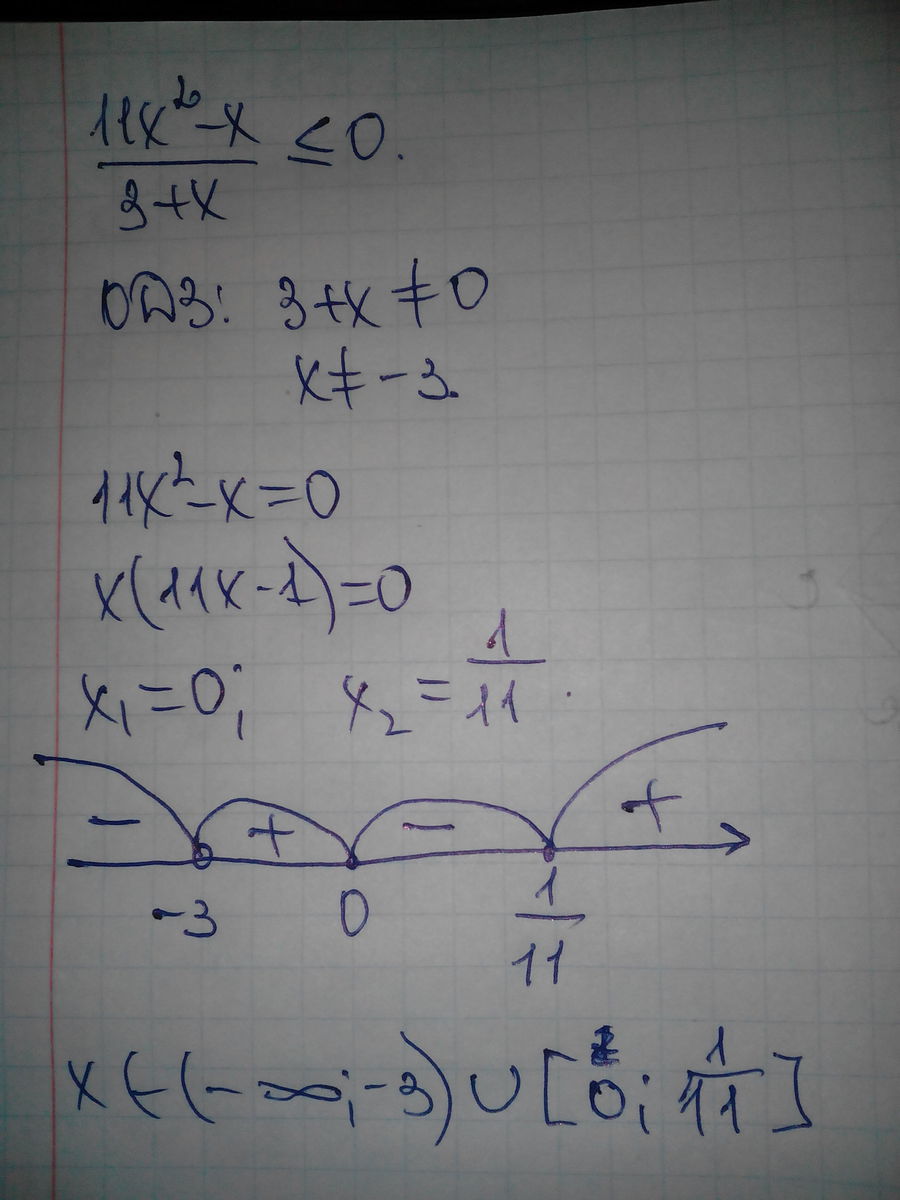 11x²-x
───── ≤ 0.
3+x
ОДЗ: 3+x ≠ 0
x ≠ -3.
11x²-x=0
x(11x-1)=0
x₁=0; x₂=1/11.
- + - +
-3 0 1/11
x ∈ (-∞; -3) ∪ [0; 1/11]